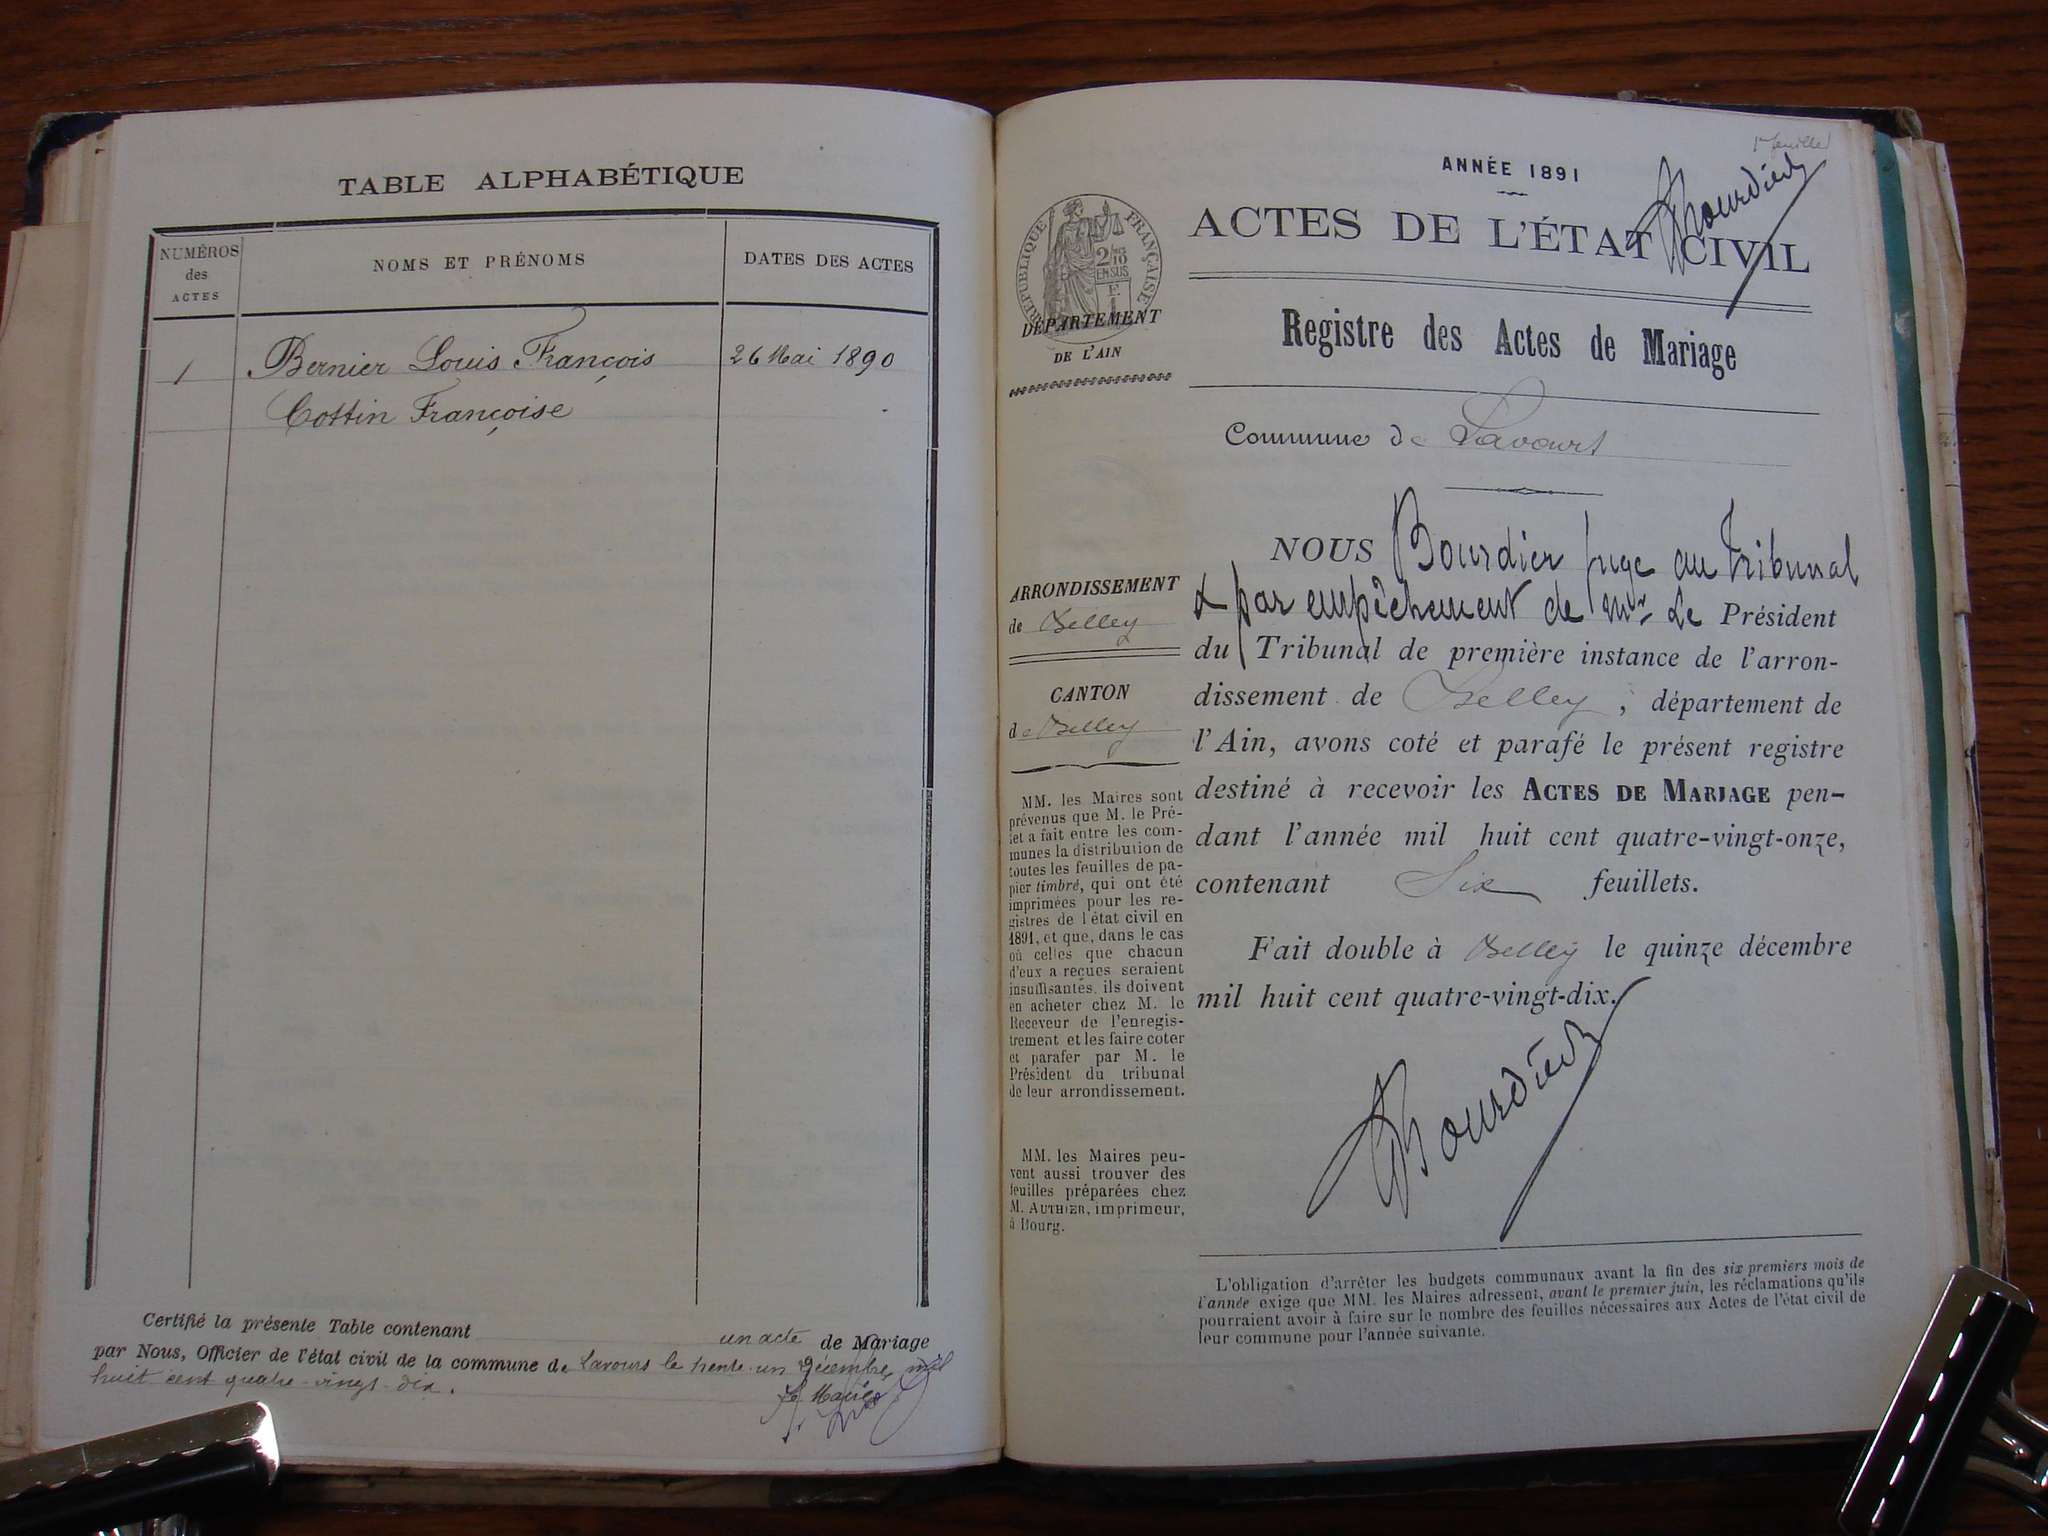 TABLE ALPHABÉTIQUE
NUMÉROS
des
ACTES
NOMS ET PRÉNOMS
DATES DES ACTES
1
Bernier Louis François
26 Mai 1890
Cottin Françoise
Certifié la présente Table contenant un acte de Mariage
par Nous, Officier de l'état civil de la commune de Lavours le trente-un Décembre mil
huit cent quatre-vingt-dix.
Le Maire
1er feuillet
ANNÉE 1891
Bourdier
RÉPUBLIQUE FRANÇAISE
2/10
EN SUS
ACTES DE L'ÉTAT CIVIL
DÉPARTEMENT
DE L'AIN
Registre des Actes de Mariage
Commune de Lavours
ARRONDISSEMENT
de Belley
CANTON
de Belley
MM. les Maires sont
prévenus que M. le Pré-
fet a fait entre les com-
munes la distribution de
toutes les feuilles de pa-
pier timbré, qui ont été
imprimées pour les re-
gistres de l'état civil en
1891, et que, dans le cas
où celles que chacun
d'eux a reçues seraient
insuffisantes, ils doivent
en acheter chez M. le
Receveur de l'enregis-
trement et les faire coter
et parafer par M. le
Président du tribunal
de leur arrondissement.
MM. les Maires peu-
vent aussi trouver des
feuilles préparées chez
M. AUTHIER, imprimeur,
à Bourg.
NOUS Bourdier juge au Tribunal
& par empêchement de Mr. Le Président
du Tribunal de première instance de l'arron-
dissement de Belley, département de
l'Ain, avons coté et parafé le présent registre
destiné à recevoir les ACTES DE MARIAGE pen-
dant l'année mil huit cent quatre-vingt-onze,
contenant Six feuillets.
Fait double à Belley le quinze décembre
mil huit cent quatre-vingt-dix.
Bourdier
L'obligation d'arrêter les budgets communaux avant la fin des six premiers mois de
l'année exige que MM. les Maires adressent, avant le premier juin, les réclamations qu'ils
pourraient avoir à faire sur le nombre des feuilles nécessaires aux Actes de l'état civil de
leur commune pour l'année suivante.